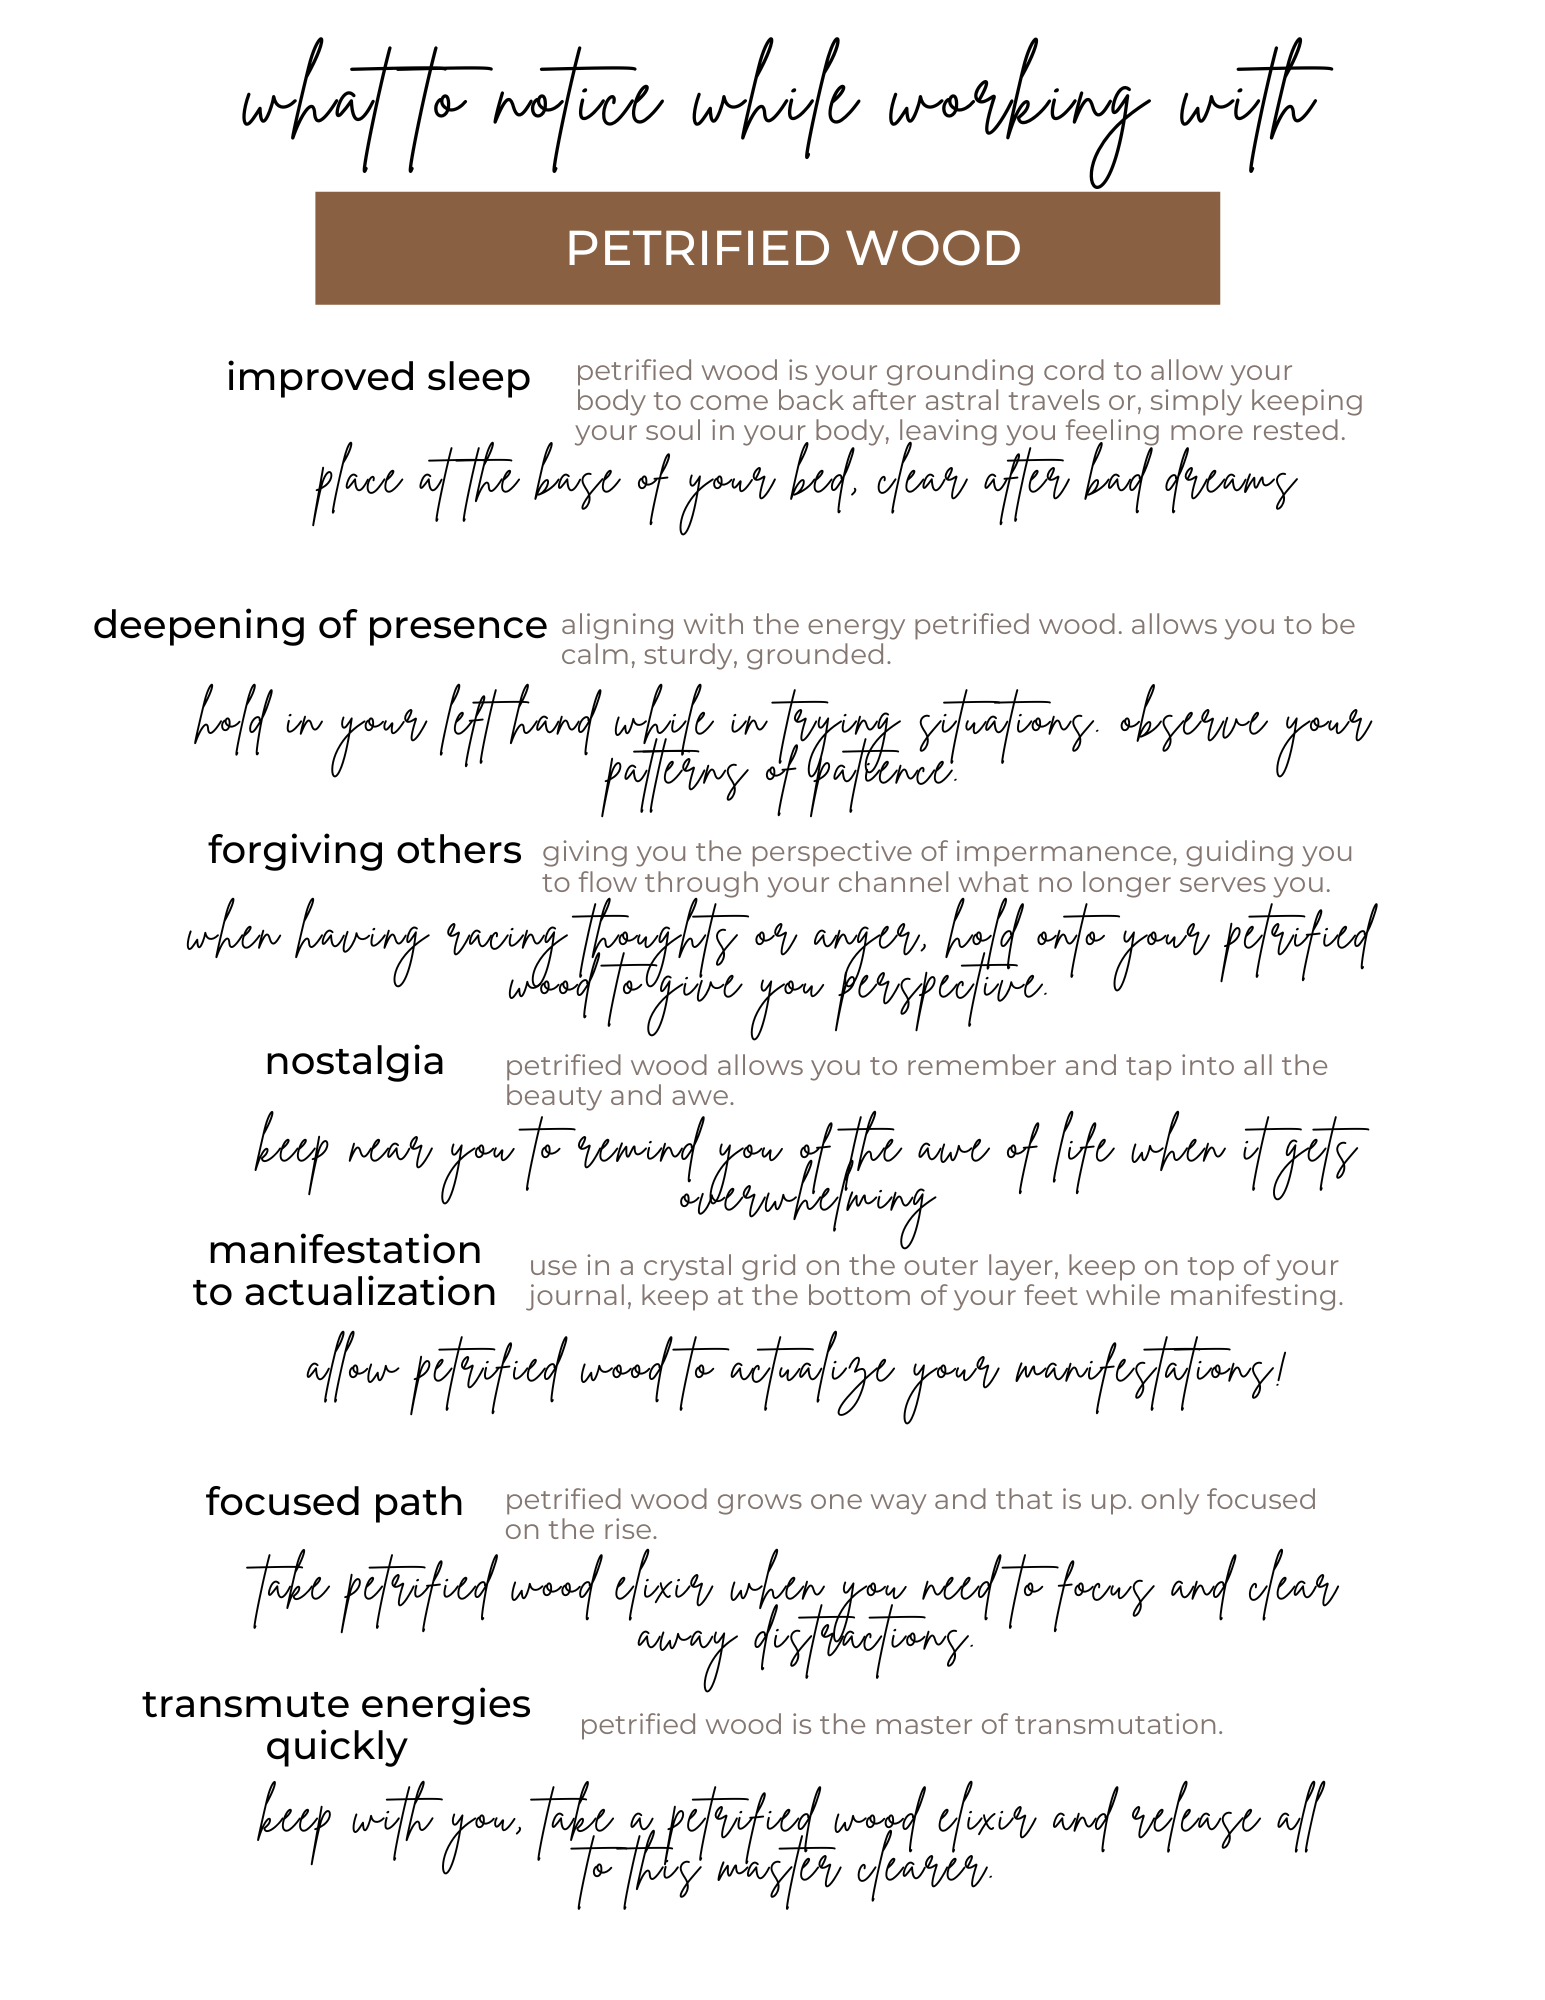 what to notice while working with
PETRIFIED WOOD
improved sleep
petrified wood is your grounding cord to allow your
body to come back after astral travels or, simply keeping
your soul in your body, leaving you feeling more rested.
place at the base of your bed, clear after bad dreams
deepening of presence
aligning with the energy petrified wood. allows you to be
calm, sturdy, grounded.
hold in your left hand while in trying situations. observe your
patterns of patience.
forgiving others
giving you the perspective of impermanence, guiding you
to flow through your channel what no longer serves you.
when having racing thoughts or anger, hold onto your petrified
wood to give you perspective.
nostalgia
petrified wood allows you to remember and tap into all the
beauty and awe.
keep near you to remind you of the awe of life when it gets
overwhelming
manifestation
to actualization
use in a crystal grid on the outer layer, keep on top of your
journal, keep at the bottom of your feet while manifesting.
allow petrified wood to actualize your manifestations!
focused path
petrified wood grows one way and that is up. only focused
on the rise.
take petrified wood elixir when you need to focus and clear
away distractions.
transmute energies
quickly
petrified wood is the master of transmutation.
keep with you, take a petrified wood elixir and release all
to this master clearer.